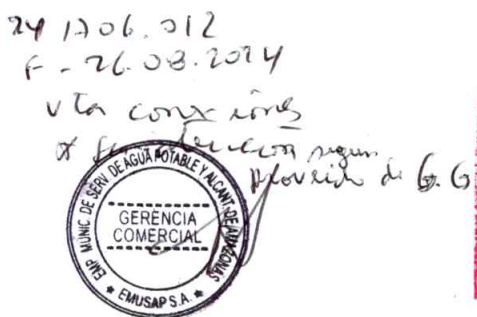 24 1706.012
F - 26.08.2024
v ta conexiones
según
proveído de G.G
EMP MUNIC DE SERV DE AGUA POTABLE Y ALCANT. DE AMAZONAS
GERENCIA
COMERCIAL
★ EMUSAP S.A. ★